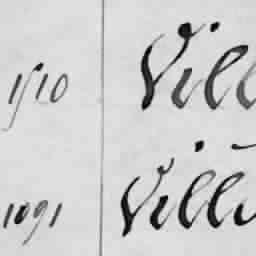 1510 Vill
1091 Villu